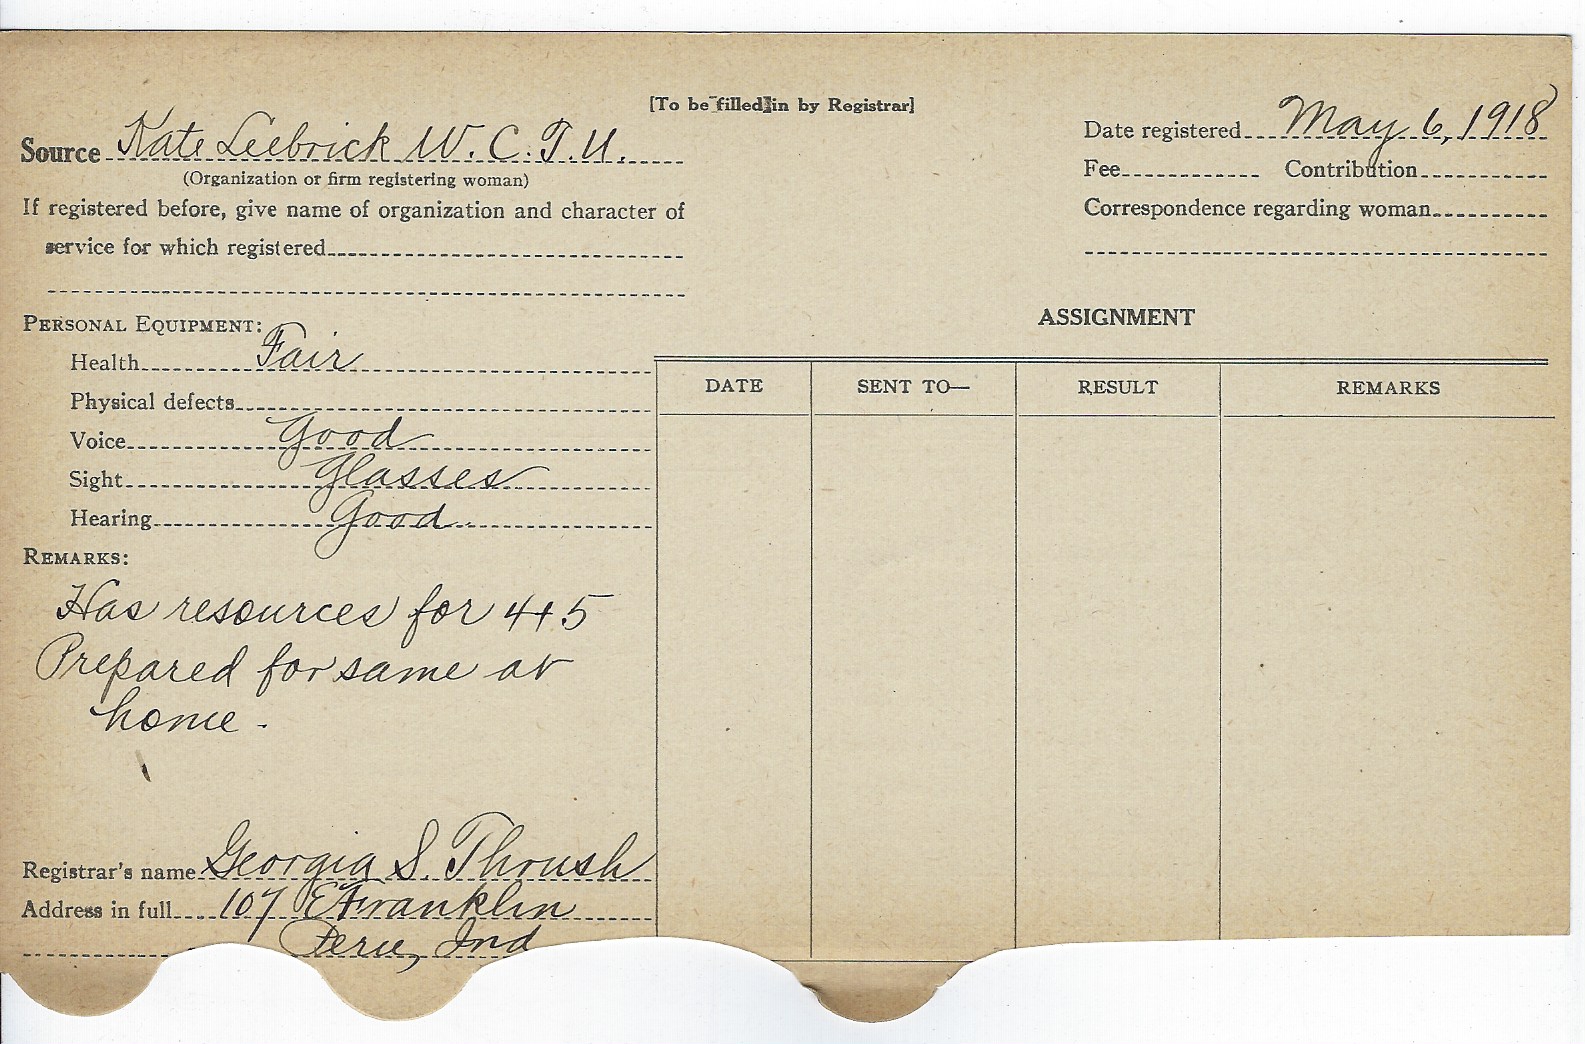 [To be filled in by Registrar]
Source Kate Leebrick W. C. T. U.
(Organization or firm registering woman)
If registered before, give name of organization and character of
service for which registered
Date registered May 6, 1918
Fee Contribution
Correspondence regarding woman
PERSONAL EQUIPMENT:
Health Fair
Physical defects
Voice Good
Sight Glasses
Hearing Good
REMARKS:
Has resources for 4+5
Prepared for same at
home -
Registrar's name Georgia S. Thrush
Address in full 107 E Franklin
Peru, Ind
ASSIGNMENT
DATE SENT TO— RESULT REMARKS